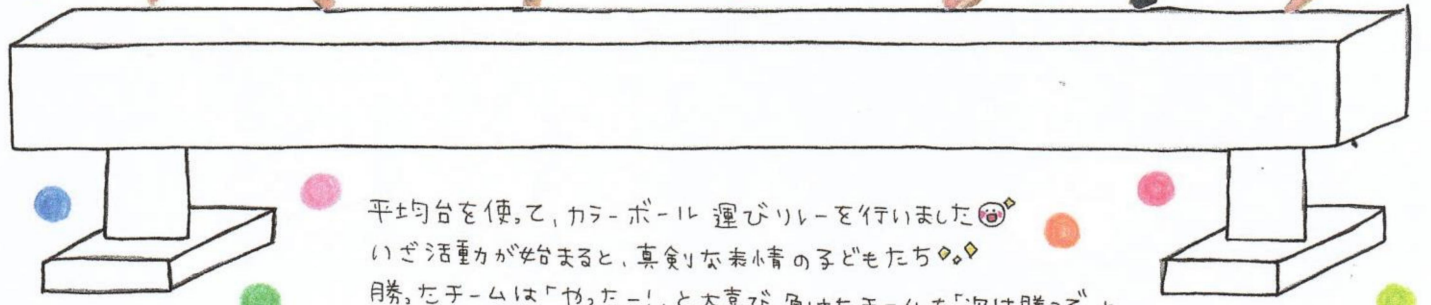 平均台を使って、カラーボール運びリレーを行いました
いざ活動が始まると、真剣な表情の子どもたち
勝ったチームは「やったー!」と大喜び負けたチームも「次は勝つぞ」と